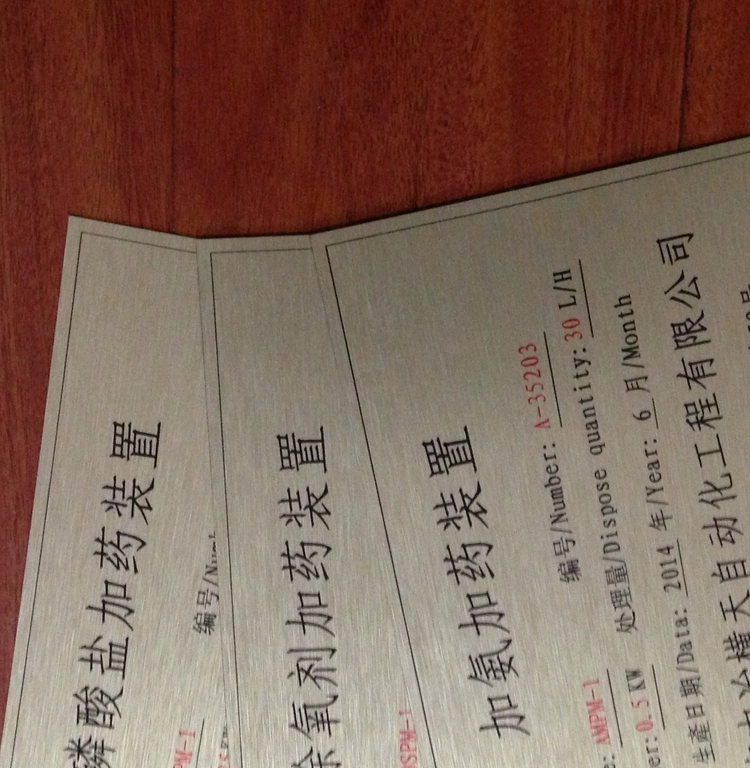 磷酸盐加药装置
PM-1
编号/Num
除氧剂加药装置
OSPM-1
加氨加药装置
AMPM-1 编号/Number: A-35203
er: 0.5 KW 处理量/Dispose quantity: 30 L/H
生産日期/Data: 2014 年/Year: 6 月/Month
冶横天自动化工程有限公司